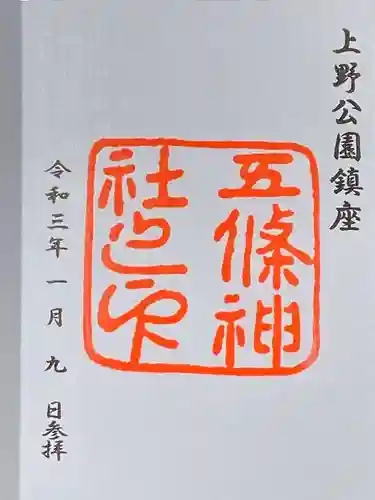 上野公園鎮座
五條神
社之印
令和三年一月九日参拝